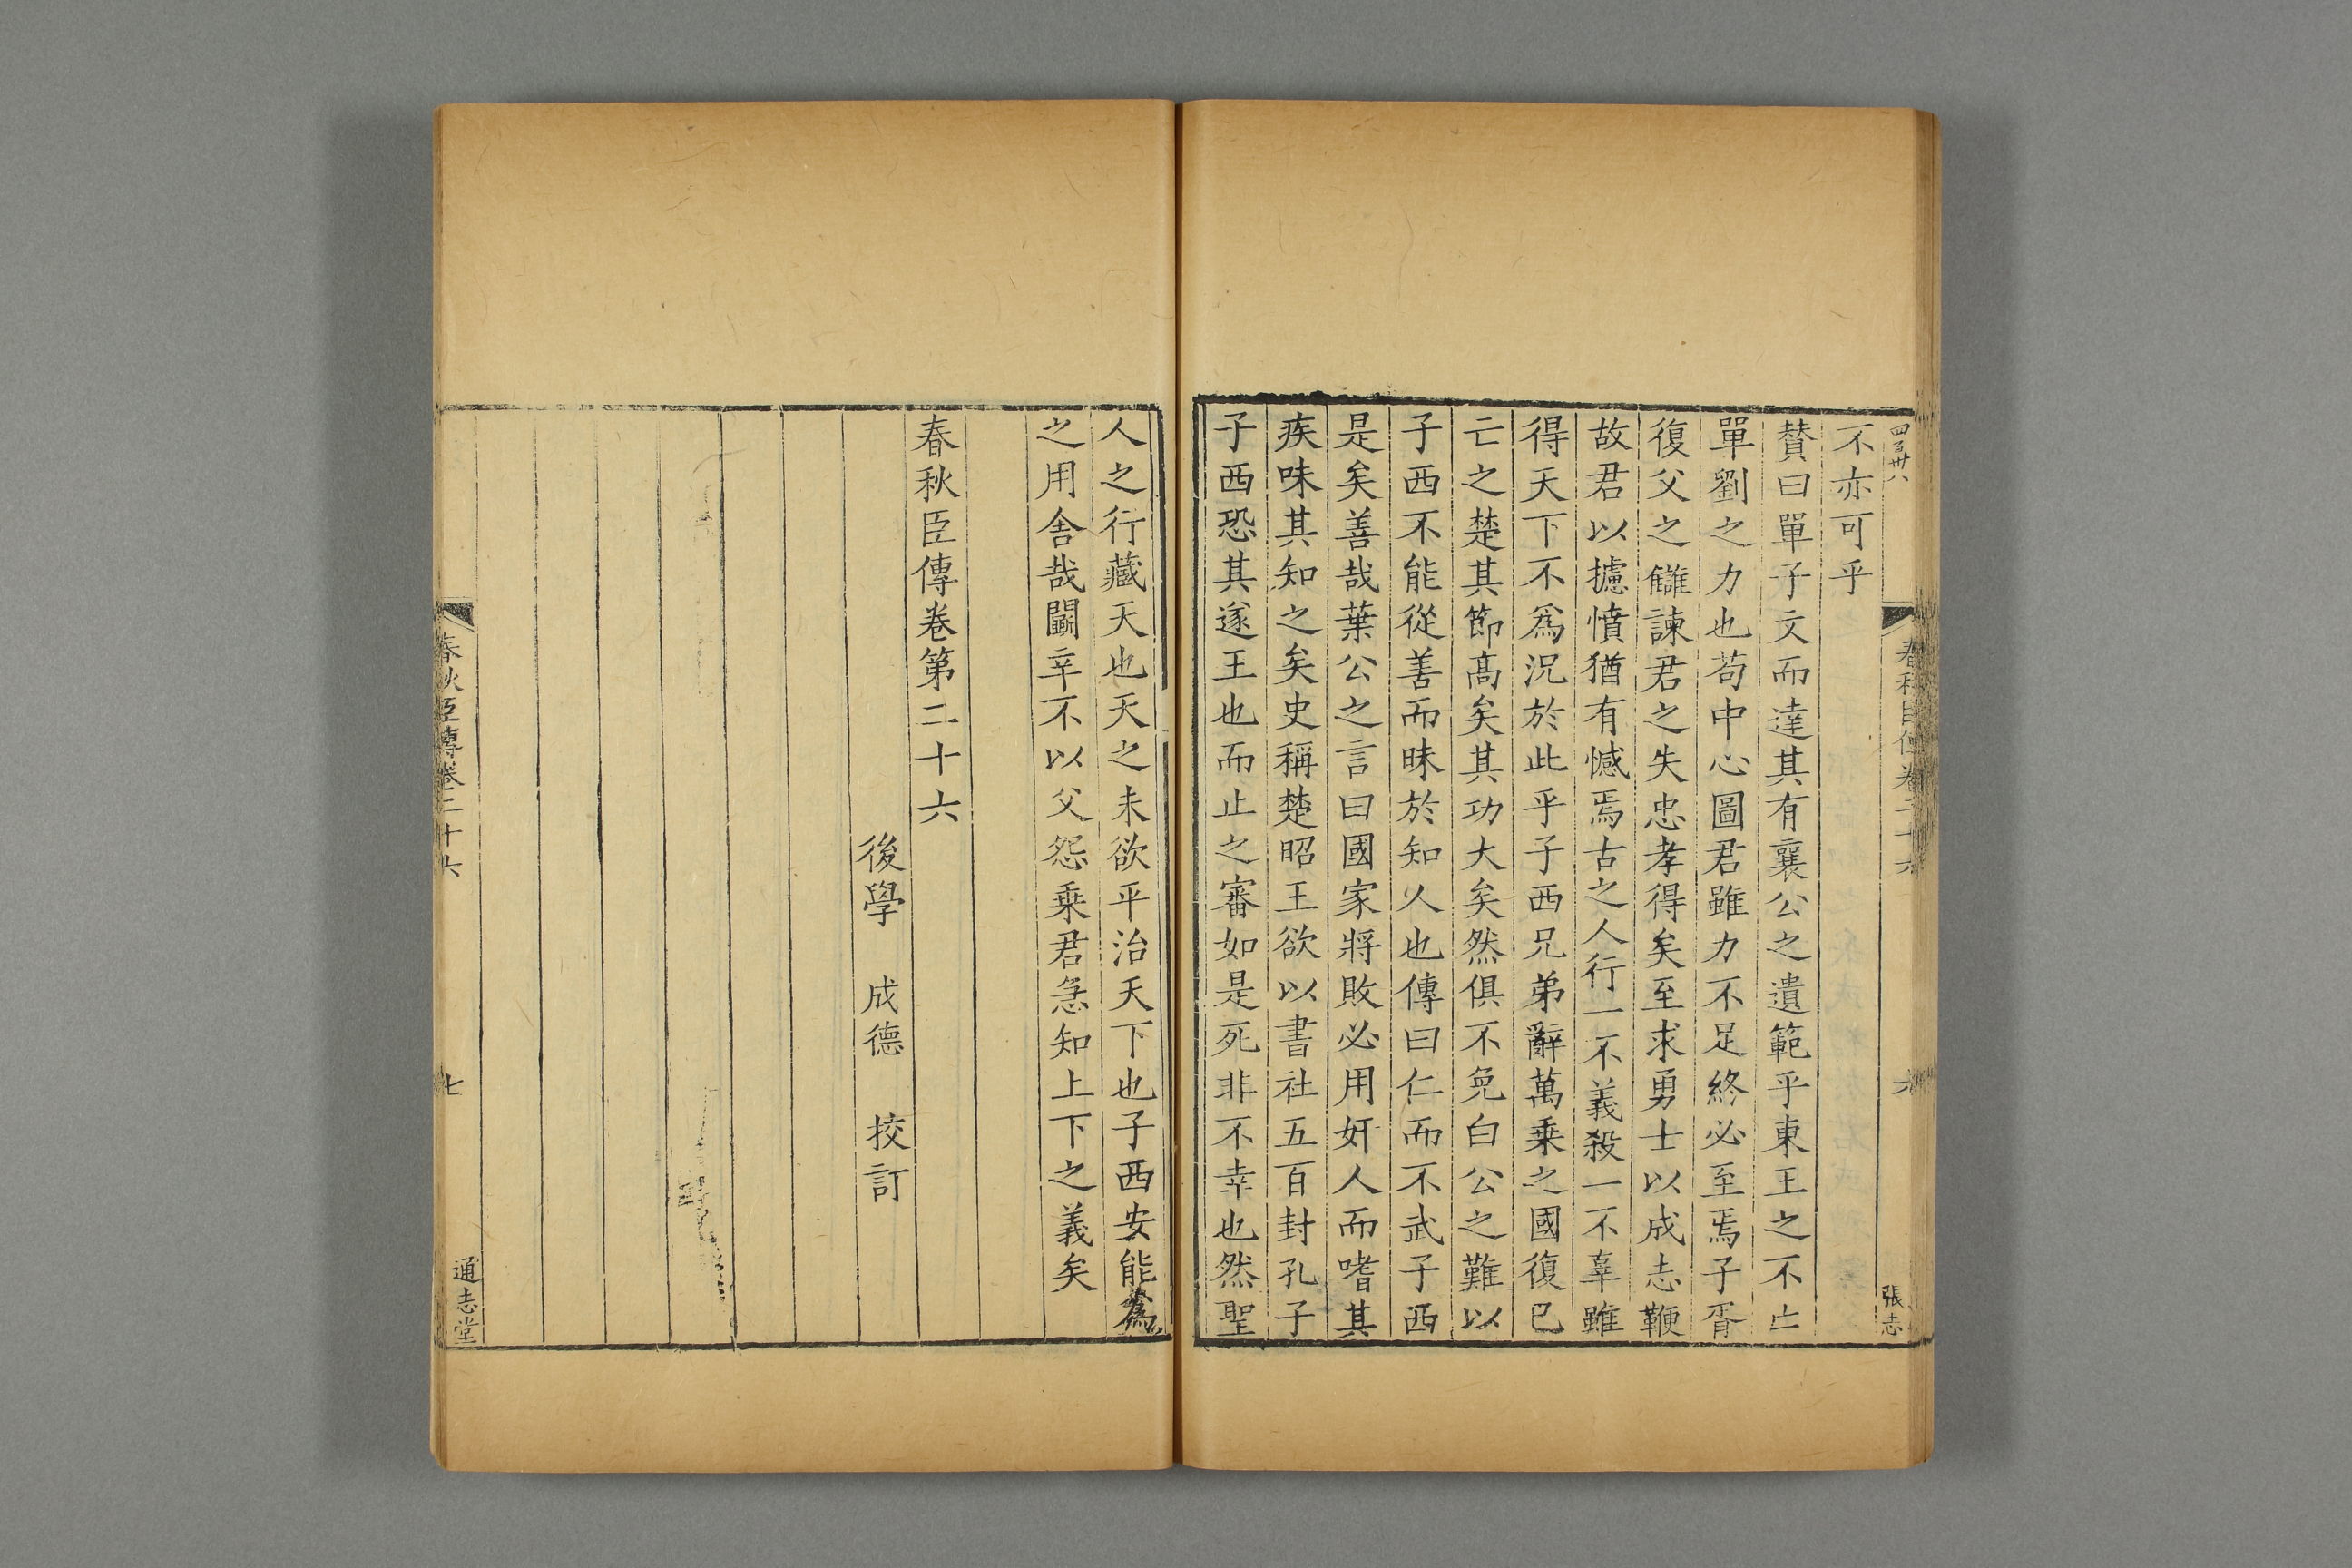 四百卅八
春秋臣傳卷二十六
六
張志
不亦可乎
賛曰單子文而達其有襄公之遺範乎東王之不亡
單劉之力也苟中心圖君雖力不足終必至焉子胥
復父之讎諫君之失忠孝得矣至求勇士以成志鞭
故君以攄憤猶有憾焉古之人行一不義殺一不辜雖
得天下不爲況於此乎子西兄弟辭萬乗之國復已
亡之楚其節髙矣其功大矣然俱不免白公之難以
子西不能從善而昧於知人也傳曰仁而不武子西
是矣善哉葉公之言曰國家將敗必用奸人而嗜其
疾味其知之矣史稱楚昭王欲以書社五百封孔子
子西恐其遂王也而止之審如是死非不幸也然聖
人之行藏天也天之未欲平治天下也子西安能爲
之用舍哉鬭辛不以父怨乗君急知上下之義矣
春秋臣傳卷第二十六
後學 成德 挍訂
春秋臣傳卷二十六
七
通志堂